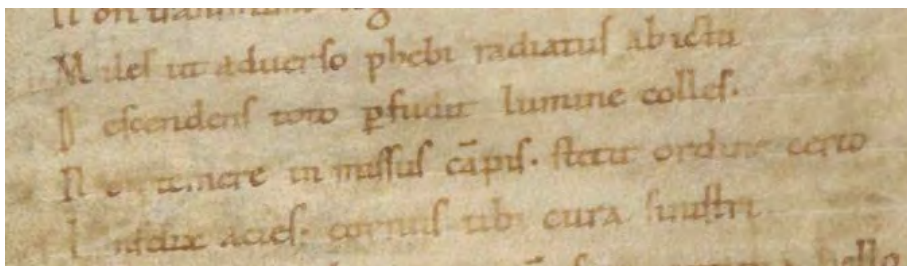 N on
M ileſ ut aduerſo phebi radiatuſ ab ictu
D eſcendenſ toto ꝑfudit lumine colleſ.
N on temere in miſſuſ cāpiſ. ſtetit ordine certo
I nfelix acieſ. cornuſ tibi cura ſiniſtri
bello